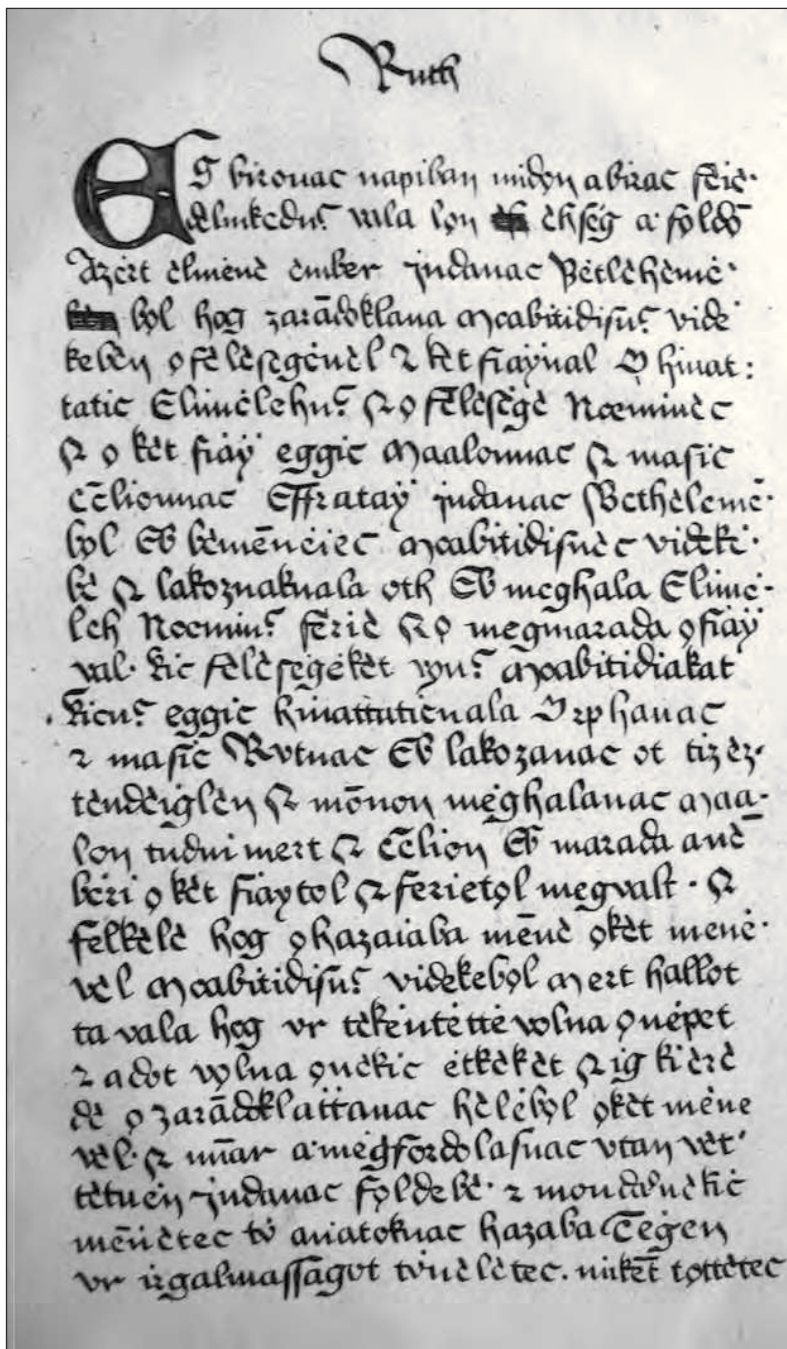 Ruth
Eg bironac napiban midọn abirac fèiè·
dèlmkèdnc̉ vala lọn èhſeg a· fọldọ̄
Azèrt èlmènè èmber judanac Bètlèhèmè·
bọl hog zarādoklana moabitidiſnc̉ vidè
kebèn ọ fèlèſegènèl ꝛ kèt fiaẏnal O hiuat:
tatic Elimèlèhnc̉ ꝛ ọ fèlèſegè Noèminèc
ꝛ ọ kèt fiaẏ eggic Maalonnac ꝛ maſic
cc̄lionnac Effrataẏ judanac Bethèlemè·
bọl Es bèmēnèiec moabitidiſnèc vidèkè·
bè ꝛ lakoznakuala oth Es meghala Elimè·
lèh Noèminc̉ fèriè ꝛ ọ megmarada ọ fiaẏ
val· kic fèlèſegèkèt vọnc̉ moabitidiakat
kicnc̉ eggic hiuattaticuala Orphanac
ꝛ maſic Rvtnac Es lakozanac ot tiz èz·
tèndèiglèn ꝛ mēnon mèghalanac maa·
lon tudni mert ꝛ cc̄lion Es marada anè̄
bèri ọ kèt fiaẏtol ꝛ ferietọl megvalt · ꝛ
felkèlè hog ọ hazaiaba mēnè ọkèt mènè·
vèl moabitidiſnc̉ vidèkebọl mert hallot
ta vala hog vr tèkèntèttè vọlna ọ nèpet
ꝛ adot vọlna ọnèkic ètkèkèt ꝛ ig kièrè
dè ọ zarādoklattanac hèlèbọl ọkèt mènè
vèl· ꝛ imar a· mègfordolaſnac vtan vèt·
tètuèn judanac fọldebè· ꝛ monda ọnèkic
mēnètec tv̇ aniatoknac hazaba Tègèn
vr irgalmaſſagot tv̇nèlètec. mikèt tọttètec